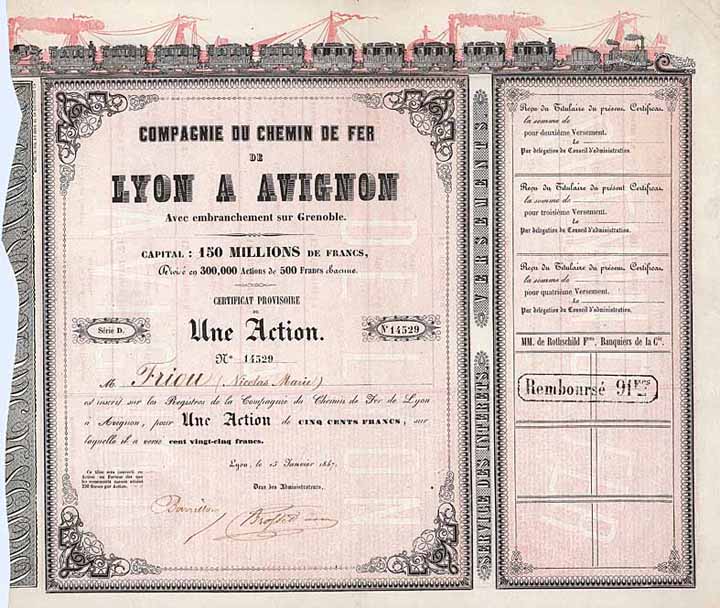 COMPAGNIE DU CHEMIN DE FER
DE
LYON A AVIGNON
Avec embranchement sur Grenoble.
CAPITAL : 150 MILLIONS DE FRANCS,
Divisé en 300,000 Actions de 500 Francs chacune.
CERTIFICAT PROVISOIRE
Une Action.
Série D.
N° 14529
N° 14529
M. Friou (Nicolas Marie)
est inscrit sur les Registres de la Compagnie du Chemin de Fer de Lyon
à Avignon, pour Une Action de CINQ CENTS FRANCS, sur
laquelle il a versé cent vingt-cinq francs.
Lyon, le 15 Janvier 1847.
Ce titre sera converti en
Action au Porteur dès que
les versements auront atteint
250 francs par Action.
Deux des Administrateurs.
VERSEMENTS
SERVICE DES INTERETS
Reçu du Titulaire du présent Certificat
la somme de
pour deuxième Versement.
Le
Par délégation du Conseil d'administration.
Reçu du Titulaire du présent Certificat
la somme de
pour troisième Versement.
Le
Par délégation du Conseil d'administration.
Reçu du Titulaire du présent Certificat
la somme de
pour quatrième Versement.
Le
Par délégation du Conseil d'administration.
MM. de Rothschild Fres, Banquiers de la Cie.
Remboursé 91 Fcs